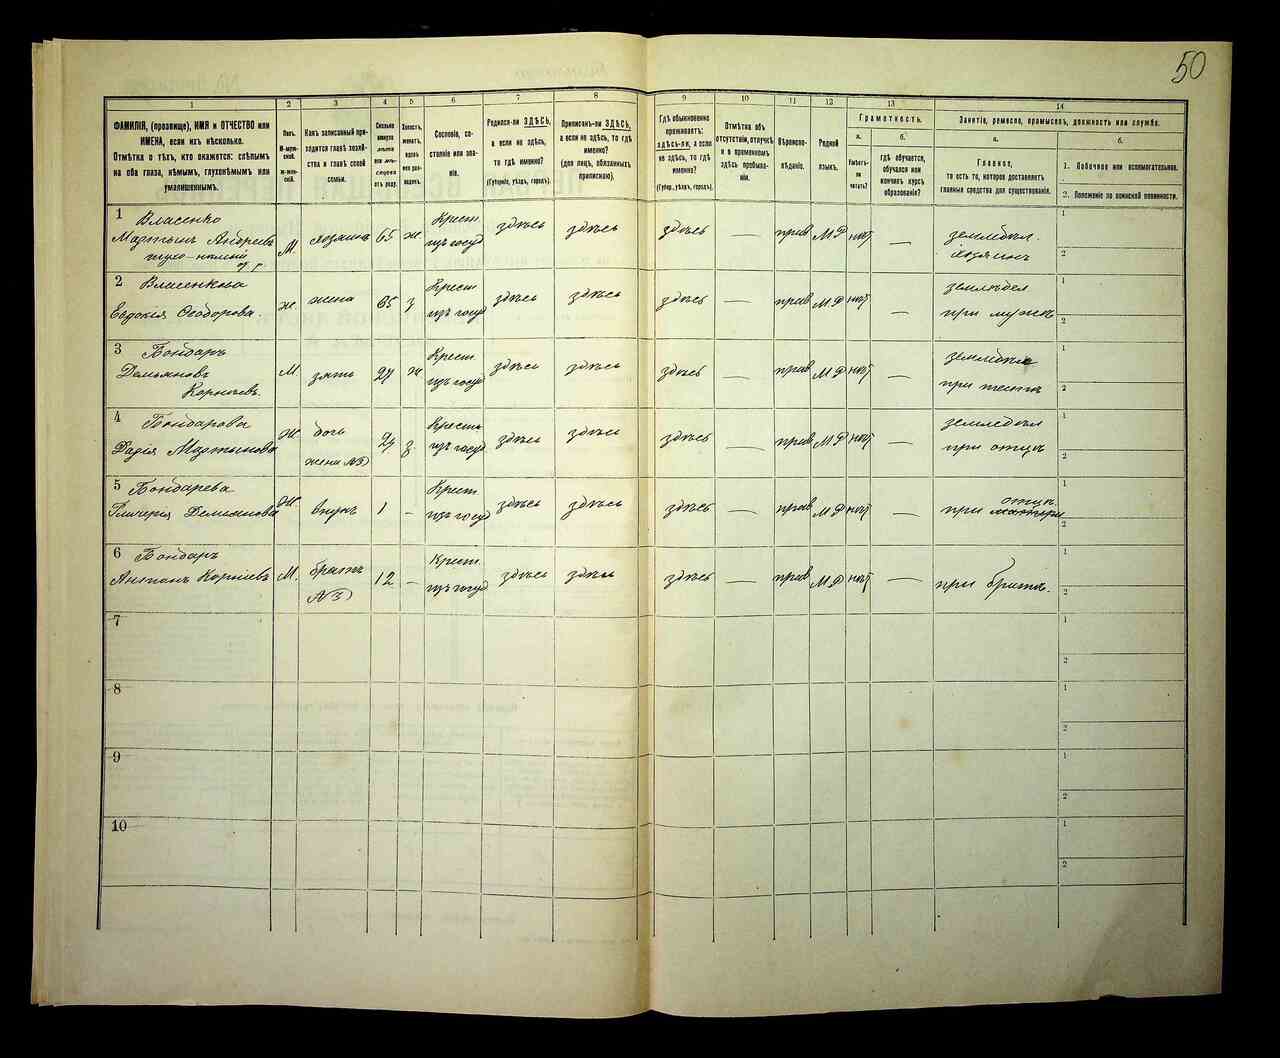 50
1
2
3
4
5
6
7
8
9
10
11
12
13
14
ФАМИЛІЯ, (прозвище), ИМЯ и ОТЧЕСТВО или
ИМЕНА, если ихъ нѣсколько.
Отмѣтка о тѣхъ, кто окажется: слѣпымъ
на оба глаза, нѣмымъ, глухонѣмымъ или
умалишеннымъ.
Полъ.
М-муж-
ской.
Ж-жен-
скій.
Какъ записанный при-
ходится главѣ хозяй-
ства и главѣ своей
семьи.
Сколько
минуло
лѣтъ
или мѣ-
сяцевъ
отъ роду.
Холостъ,
женатъ,
вдовъ
или раз-
веденъ.
Сословіе, со-
стояніе или зва-
ніе.
Родился-ли ЗДѢСЬ,
а если не здѣсь,
то гдѣ именно?
(Губернія, уѣздъ, городъ).
Приписанъ-ли ЗДѢСЬ,
а если не здѣсь, то гдѣ
именно?
(для лицъ, обязанныхъ
припискою).
Гдѣ обыкновенно
проживаетъ:
ЗДѢСЬ-ЛИ, а если
не здѣсь, то гдѣ
именно?
(Губер., уѣздъ, городъ).
Отмѣтка объ
отсутствіи, отлучкѣ
и о временномъ
здѣсь пребыва-
ніи.
Вѣроиспо-
вѣданіе.
Родной
языкъ.
Грамотность.
а.
Умѣетъ-
ли
читать?
б.
гдѣ обучается,
обучался или
кончилъ курсъ
образованія?
Занятіе, ремесло, промыселъ, должность или служба.
а.
Главное,
то есть то, которое доставляетъ
главныя средства для существованія.
б.
1. Побочное или вспомогательное.
2. Положеніе по воинской повинности.
1 Власенко
Мартынъ Андреевъ
глухо-нѣмой
М хозяинъ 65 ж Крест.
изъ госуд здѣсь здѣсь здѣсь — прав МР нѣт — земледѣл.
хозяинъ
1
2
2 Власенкова
Евдокія Ѳеодорова.
ж жена 65 з Крест
изъ госуд здѣсь здѣсь здѣсь — прав МР нѣт — земледѣл
при мужѣ
1
2
3 Бондарь
Демьяновъ
Корнѣевъ.
М зять 27 ж Крест.
изъ госуд здѣсь здѣсь здѣсь — прав МР нѣт — земледѣл
при тестѣ
1
2
4 Бондарова
Дарія Мартынова
Ж дочь
жена №3 27 з. Крест
изъ госуд здѣсь здѣсь здѣсь — прав МР нѣт — земледѣл
при отцѣ
1
2
5 Бондарева
Гликерія Демьянова
Ж. внука 1 – Крест
изъ госуд здѣсь здѣсь здѣсь — прав МР нѣт — при матери
отцѣ
1
2
6 Бондарь
Антонъ Корнѣевъ
М. братъ
№3 12 – Крест.
изъ госуд здѣсь здѣсь здѣсь — прав МР нѣт — при братѣ.
1
2
7
1
2
8
1
2
9
1
2
10
1
2